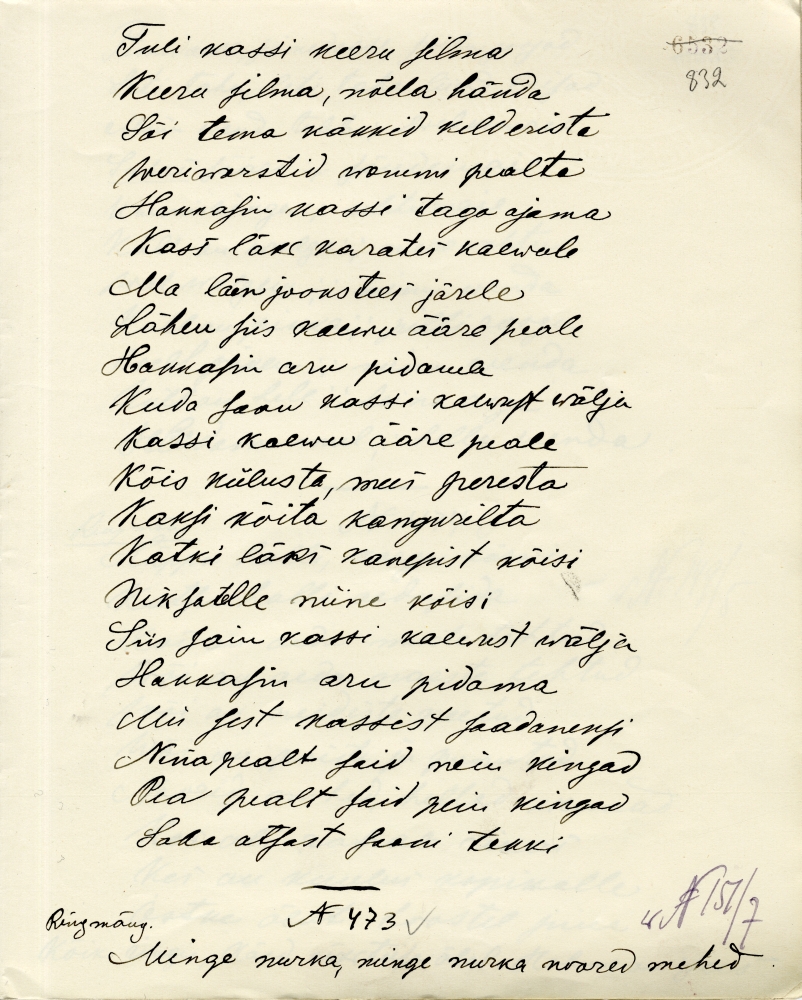 6532
832
Tuli kassi keeru silma
Keeru silma, nõela hända
Sõi tema käkkid kelderista
Weriworstid wommi pealta
Hakkasin kassi taga ajama
Kass läks karates kaewule
Ma läen joostes järele
Lähen siis kaewu ääre peale
Hakkasin aru pidama
Kuda saan kassi kaewust wälja
Kassi kaewu ääre peale
Kõis külusta, mees peresta
Kaksi kõita kangurilta
Katki läks kanepist kõisi
Niksatelle niine kõisi
Siis sain kassi kaewust wälja
Hakkasin aru pidama
Mis sest kassist saadanensi
Nina pealt said nein kingad
Pea pealt said pein kingad
Saba otsast saani tekki
№ 473
№ 151/7
Ringmäng.
Minge nurka, minge nurka noored mehed